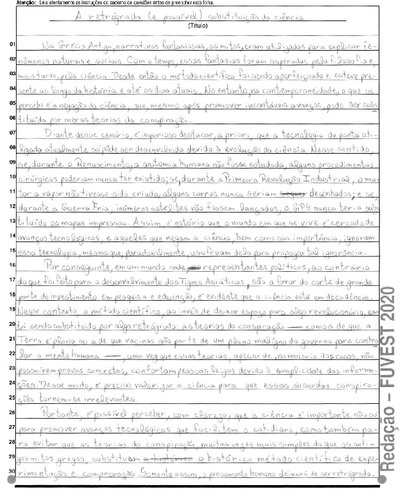 Atenção: Leia atentamente as instruções do caderno de questões antes de preencher esta folha.
A retrógrada (e possível) substituição da ciência
(Título)
01 Na Grécia Antiga, narrativas fantasiosas, os mitos, eram utilizados para explicar fe-
02 nômenos naturais e sociais. Com o tempo, essas fantasias foram superadas pela filosofia e,
03 mais tarde, pela ciência. Desde então o método científico foi sendo aperfeiçoado e esteve pre-
04 sente ao longo da história e até os dias atuais. No entanto, na contemporaneidade, o que se
05 percebe é a negação da ciência, que mesmo após promover incontáveis avanços, pode ser subs-
06 tituída por meras teorias da conspiração.
07 Diante desse cenário, é imperioso destacar, a priori, que a tecnologia de ponta uti-
08 lizada atualmente só pôde ser desenvolvida devido à evolução da ciência. Nesse sentido,
09 se, durante o Renascimento, a anatomia humana não fosse estudada, alguns procedimentos
10 cirúrgicos poderiam nunca ter existido; se, durante a Primeira Revolução Industrial, o mo-
11 tor a vapor não tivesse sido criado, alguns carros nunca seriam desenhados; e se,
12 durante a Guerra Fria, inúmeros satélites não fossem lançados, o GPS nunca teria subs-
13 tituído os mapas impressos. Assim, é notório que o mundo em que se vive é cercado de
14 avanços tecnológicos, e aqueles que negam a ciência, bem como sua importância, ignoram
15 essa tecnologia, mesmo que, paradoxalmente, usufruam dela para propagar tal ignorância.
16 Por conseguinte, em um mundo onde representantes políticos, ao contrário
17 do que foi feito para o desenvolvimento dos Tigres Asiáticos, são a favor do corte de grande
18 parte do investimento em pesquisa e educação, é evidente que a ciência está em decadência.
19 Nesse contexto, o método científico, ao invés de deixar espaço para algo revolucionário, es-
20 tá sendo substituído por algo retrógrado: as teorias da conspiração — como a de que a
21 Terra é plana ou a de que vacinas são parte de um plano maligno do governo para contro-
22 lar a mente humana —, uma vez que essas teorias, apesar de, na maioria das vezes, não
23 possuírem provas concretas, confortam pessoas leigas devido à simplicidade das informa-
24 ções. Desse modo, é preciso valorizar a ciência para que essas absurdas conspira-
25 ções tornem-se irrelevantes.
26 Portanto, é possível perceber, com clareza, que a ciência é importante não só
27 para promover avanços tecnológicos que facilitem o cotidiano, como também pa-
28 ra evitar que as teorias da conspiração, muitas vezes mais simples do que os anti-
29 gos mitos gregos, substituam o histórico método científico de expe-
30 rimentação e comprovação. Somente assim, o pensamento humano deixará de ser retrógrado.
Redação – FUVEST 2020